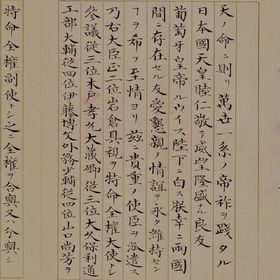 天ノ命ニ則リ萬世一系ノ帝祚ヲ踐タル
日本國天皇睦仁敬テ威望隆盛ナル良友
葡萄牙皇帝ルウイス陛下ニ白ス朕幸ニ兩國
間ニ存セル友愛懇親ノ情誼ヲ永ク維持セン
コヲ希フ至情ヨリ茲ニ貴重ノ使臣ヲ派遣ス
乃右大臣正二位岩倉具視ヲ特命全權大使トシ
參議從三位木戸孝允大藏卿從三位大久保利通
工部大輔從四位伊藤博文外務少輔從四位山口尚芳ヲ
特命全權副使トシ之ニ全權ヲ合與又ハ分與シ